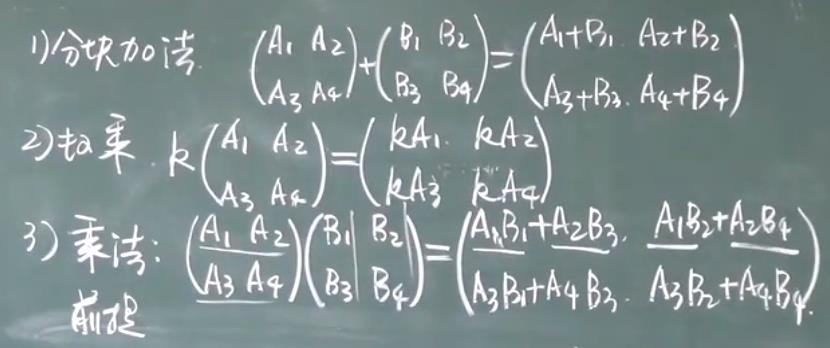 1)分块加法. (A₁ A₂ / A₃ A₄)+(B₁ B₂ / B₃ B₄)=(A₁+B₁. A₂+B₂ / A₃+B₃. A₄+B₄)
2)数乘. k(A₁ A₂ / A₃ A₄)=(kA₁. kA₂ / kA₃ kA₄)
3)乘法: (A₁ A₂ / A₃ A₄)(B₁ B₂ / B₃ B₄)=(A₁B₁+A₂B₃. A₁B₂+A₂B₄ / A₃B₁+A₄B₃. A₃B₂+A₄B₄.)
前提